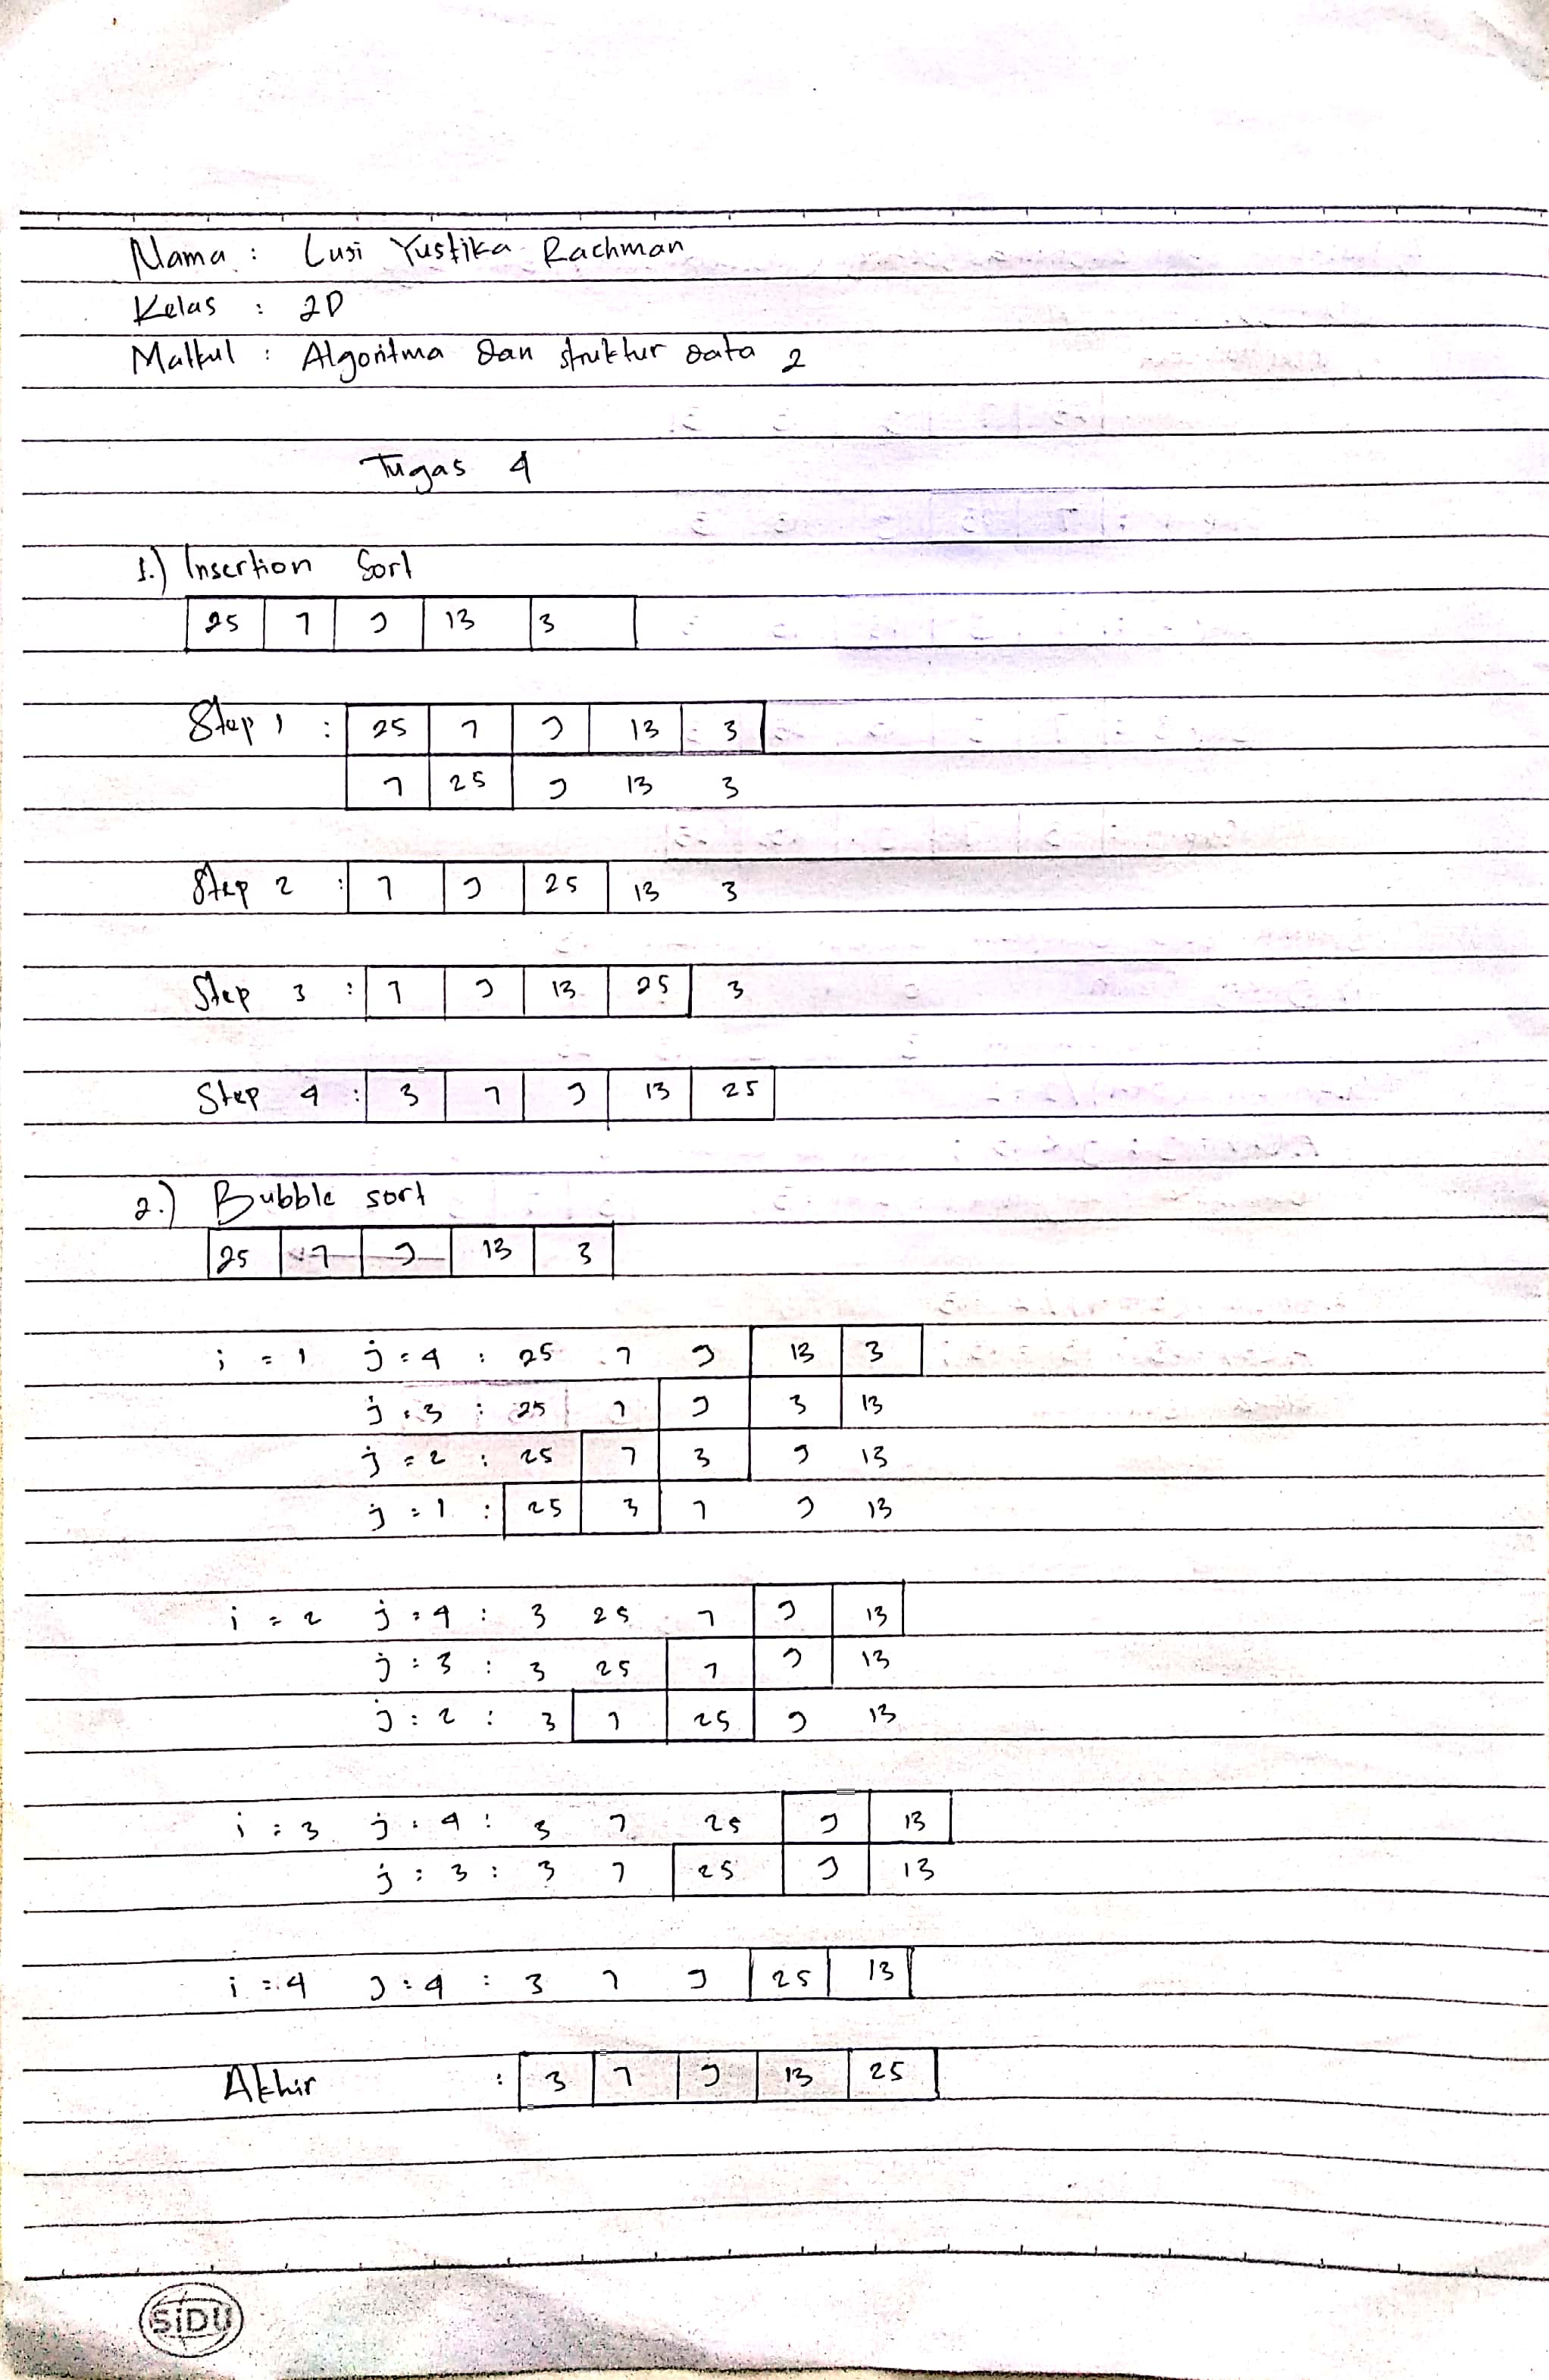 Nama : Lusi Yustika Rachman
Kelas : 2D
Matkul : Algoritma dan struktur data 2
Tugas 4
1.) Insertion Sort
25 7 9 13 3
Step 1 : 25 7 9 13 3
7 25 9 13 3
Step 2 : 7 9 25 13 3
Step 3 : 7 9 13 25 3
Step 4 : 3 7 9 13 25
2.) Bubble sort
25 7 9 13 3
i = 1 j = 4 : 25 7 9 13 3
j = 3 : 25 7 9 3 13
j = 2 : 25 7 3 9 13
j = 1 : 25 3 7 9 13
i = 2 j = 4 : 3 25 7 9 13
j = 3 : 3 25 7 9 13
j = 2 : 3 7 25 9 13
i = 3 j = 4 : 3 7 25 9 13
j = 3 : 3 7 25 9 13
i = 4 j = 4 : 3 7 9 25 13
Akhir : 3 7 9 13 25
SiDU